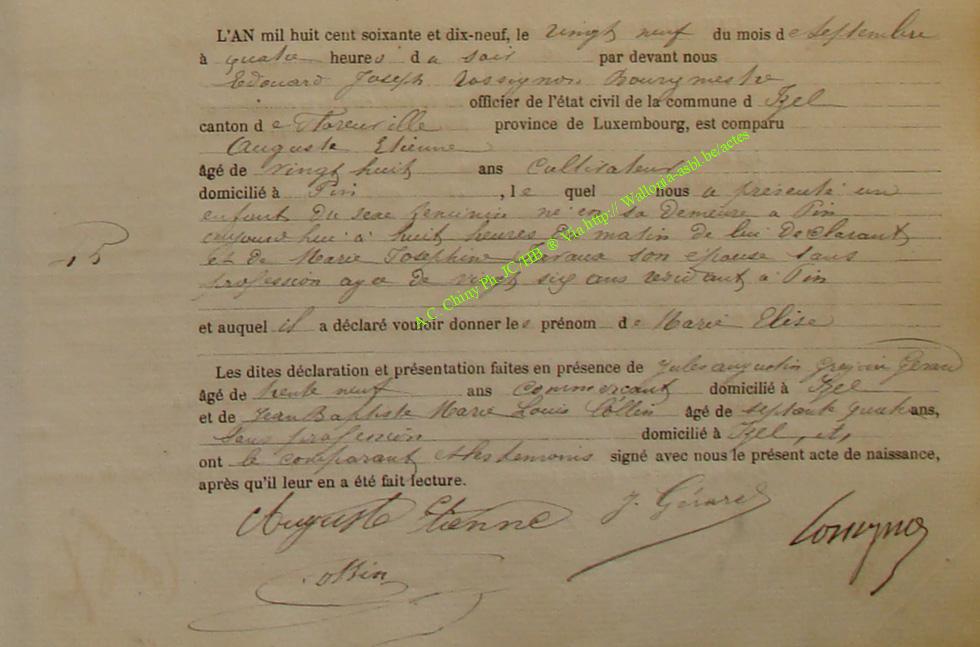 L'AN mil huit cent soixante et dix-neuf, le vingt neuf du mois de Septembre
à quatre heures du soir par devant nous
Edouard Joseph Rossignon Bourgmestre
officier de l'état civil de la commune d Izel
canton de Florenville province de Luxembourg, est comparu
Auguste Etienne
âgé de vingt huit ans Cultivateur
domicilié à Pin , le quel nous a présenté un
enfant du sexe feminin né en sa demeure à Pin
aujourd hui à huit heures du matin de lui declarant
et de Marie Josephine son épouse sans
profession agée de vingt six ans residant à Pin
et auquel il a déclaré vouloir donner les prénom de Marie Elise
Les dites déclaration et présentation faites en présence de Jules augustin Gérard
âgé de trente neuf ans commercant domicilié à Izel
et de Jean Baptiste Marie Louis Collin âgé de septante quatre ans,
sans profession domicilié à Izel , et,
ont le comparant et les temoins signé avec nous le présent acte de naissance,
après qu'il leur en a été fait lecture.
Auguste Etienne J. Gérard
Collin
A.C. Chiny Ph JC /HB ® Via http:// Wallonia-asbl.be/actes